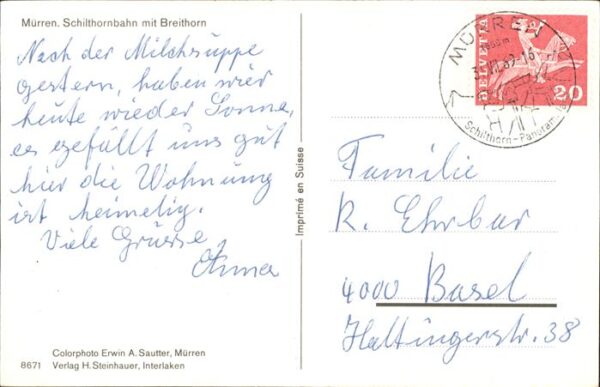 Mürren. Schilthornbahn mit Breithorn
Nach der Milchsuppe
gestern, haben wir
heute wieder Sonne,
es gefällt uns gut
hier die Wohnung
ist heimelig.
Viele Grüsse
Anna
Imprimé en Suisse
MÜRREN
HELVETIA
20
Schilthorn-Panorama
Familie
R. Ehrbar
4000 Basel
Haltingerstr. 38
Colorphoto Erwin A. Sautter, Mürren
8671 Verlag H. Steinhauer, Interlaken